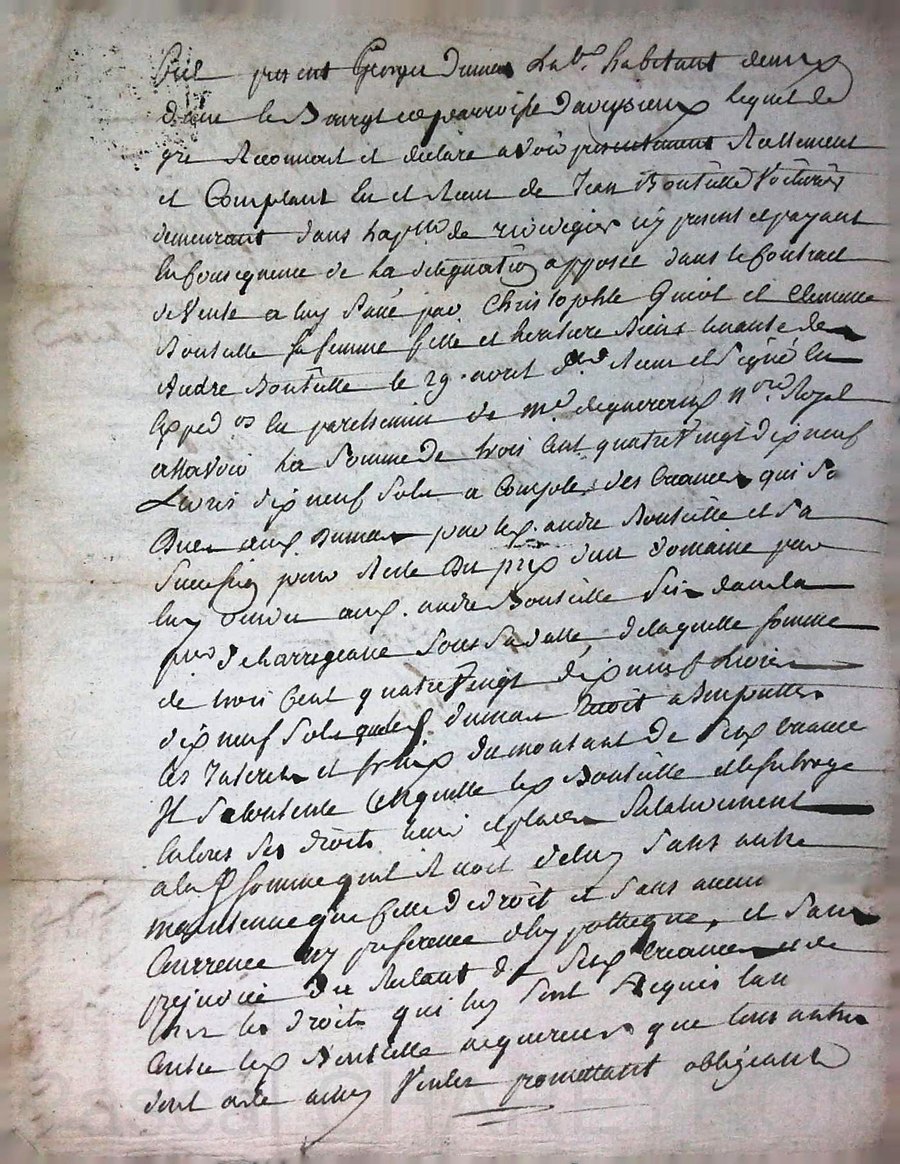 present Georges Dumas Lab.r habitant
dans le Bourgt et parroisse daveysieux lequel de
gre Reconnoit et declare avoir presentement Reellement
et Comptant eu et Receu de Jean Bouteille Voiturier
demeurant dans la p.sse de rivedegier icy present et payant
en Consequence de La delegation apposée dans le Contract
de Vente a luy Passé par Christophle Guiot et Clemence
Bouteille sa femme fille et heritiere Biens tenante de
Andre Bouteille le 29. avril d.er Receu et Signé en
Exped.on en parchemin de M.e n.re Royal
assavoir La Somme de trois Cent quatre Vingt dix neuf
Livres dix neuf Sols a Compte des Creances qui Sont
Dues aud. Dumas par led. andre Bouteille et Sa
Succession pour Reste Du prix dun domaine par
luy vendu aud. andre Bouteille Sis dans la
Sous Sa datte, de laquelle somme
de trois Cent quatre Vingt dix neuf Livres
dix neuf Sols que led. Dumas Reçoit a Imputter
les Interets et frais du montant de Sesd. Creances
Il Se Contente led. Bouteille et le Subroge
en tous Ses droits lieu et place Relativement
a la d. somme quil Reçoit de luy Sans autre
maintenue que Celle de droit et Sans aucun
Concurrence ny preference dhypotheque, et Sans
prejudice du Restant de Sesd. Creances et de
tous les droits qui luy Sont acquis tant
Contre led. Bouteille acquereur que tous autres
dont acte ainsy Voulu promettant obligeant